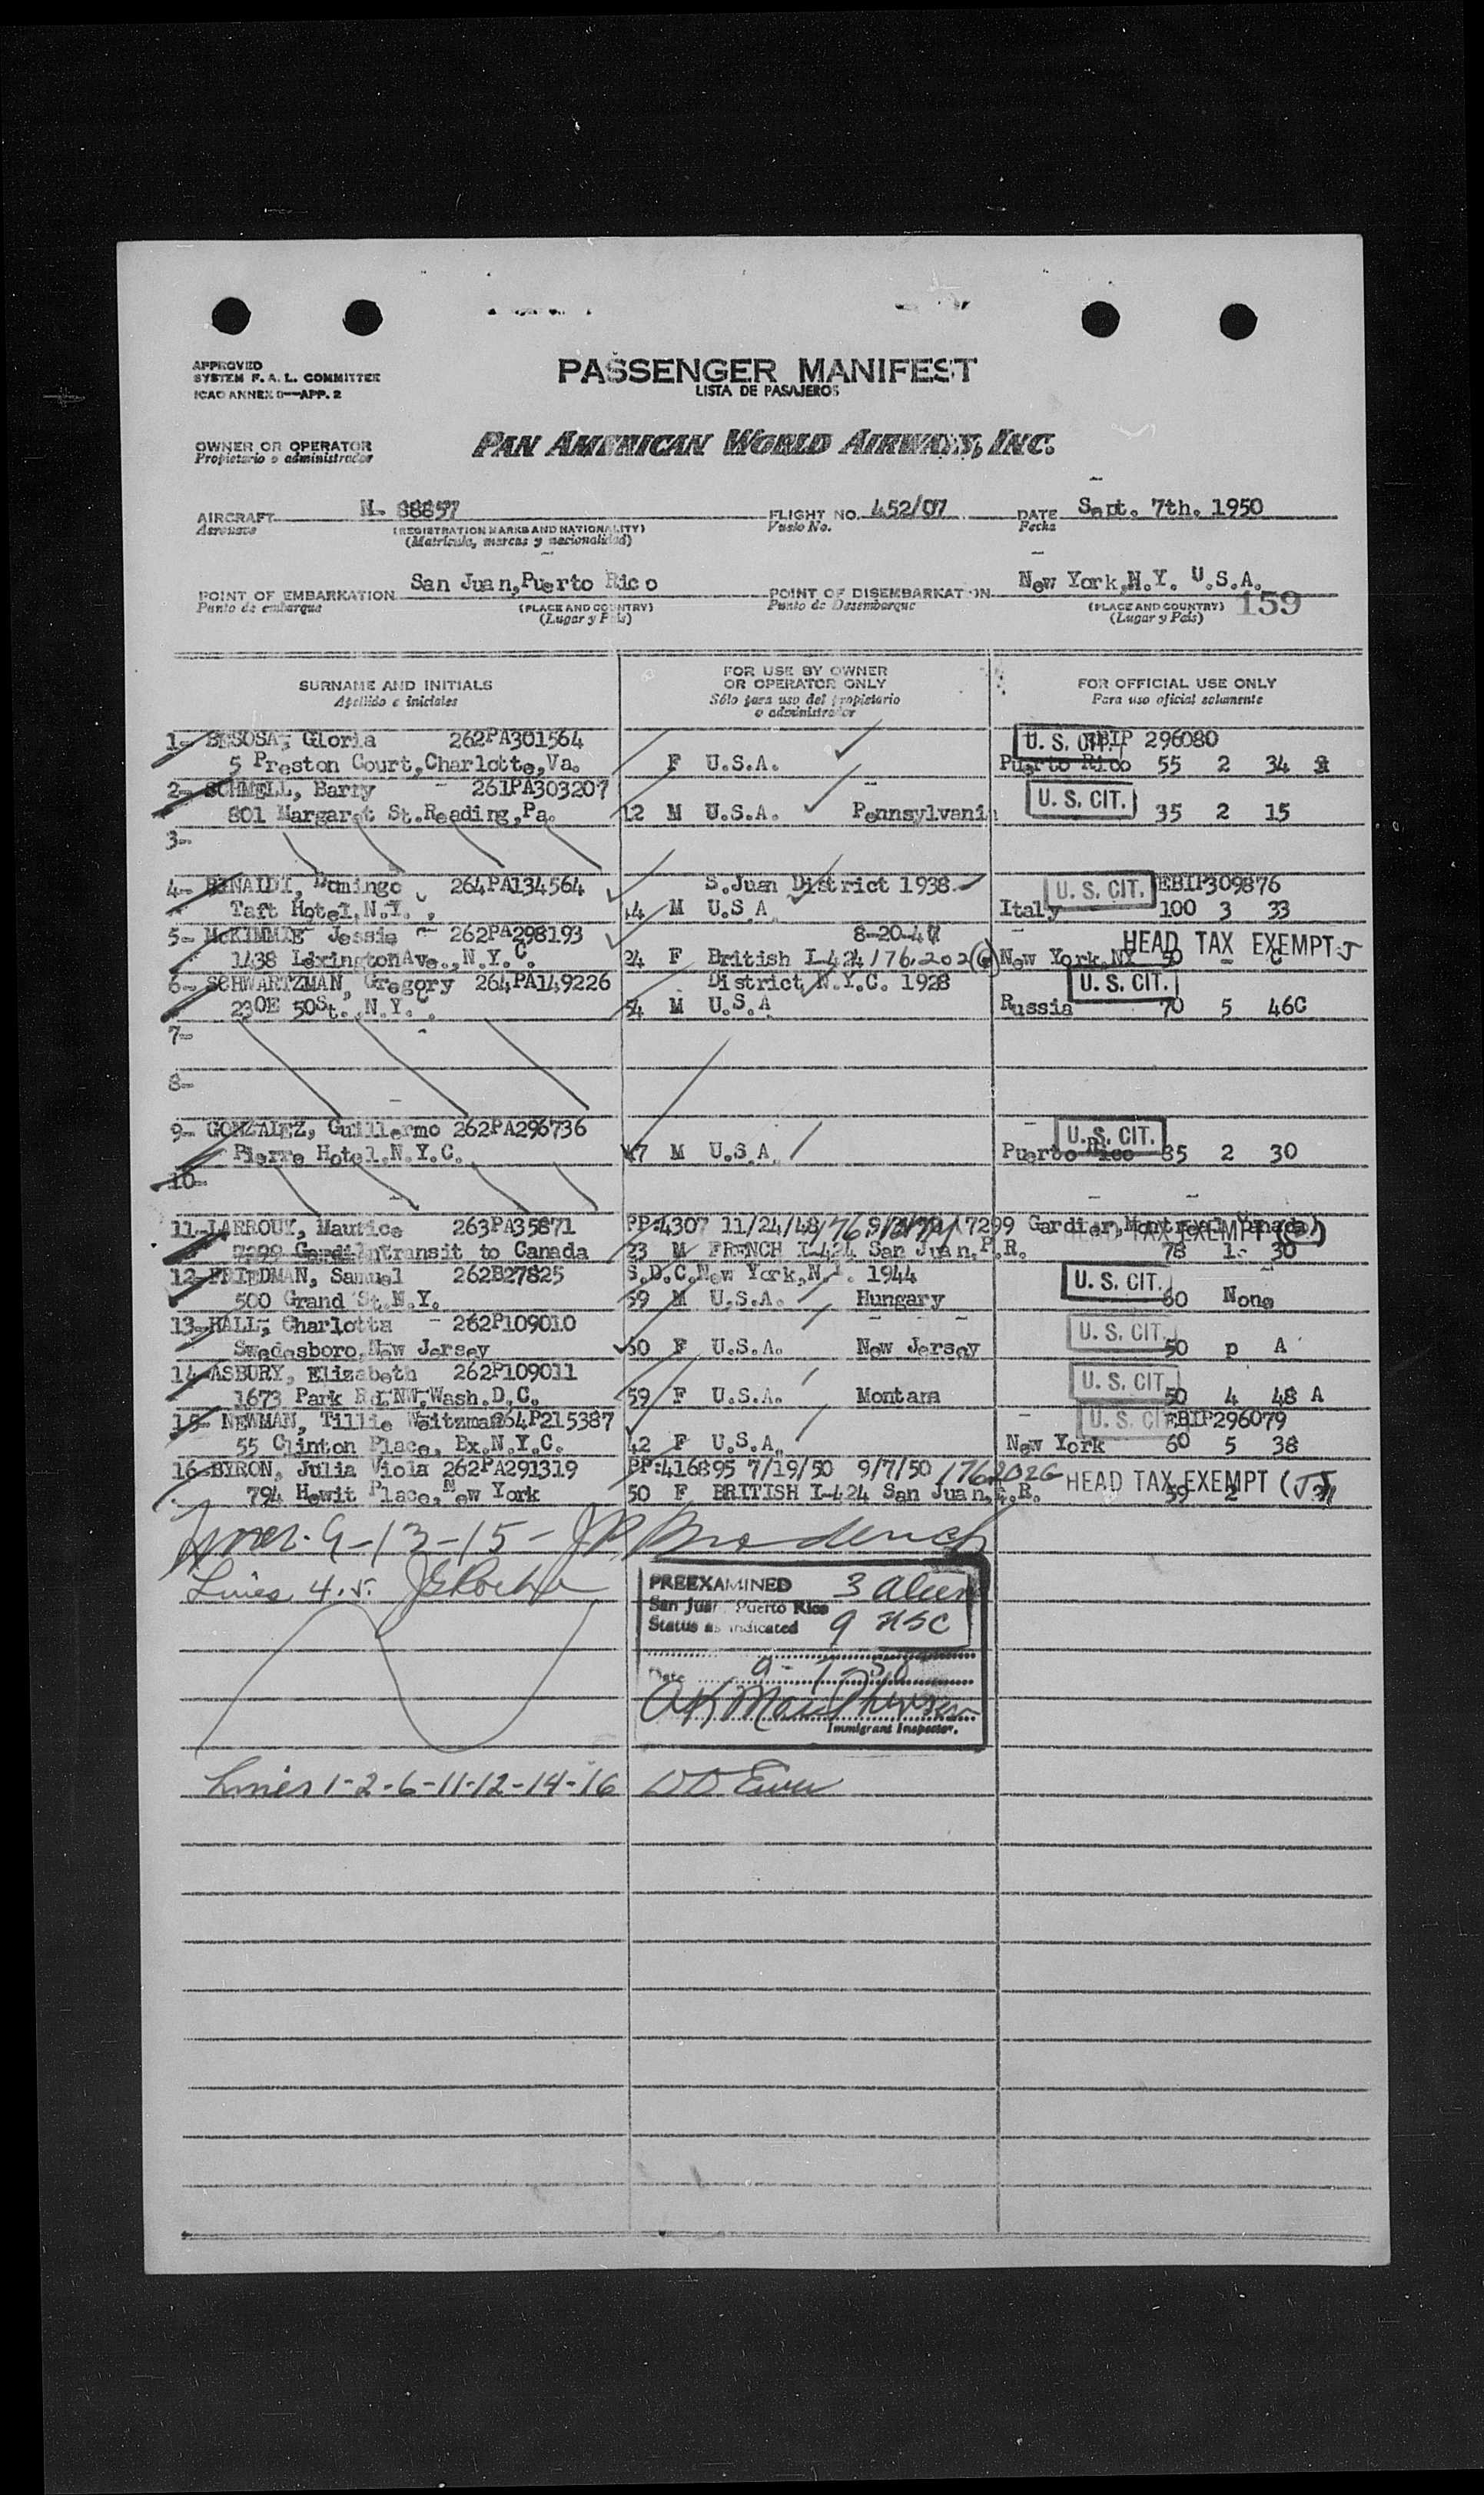 APPROVED
SYSTEM F. A. L. COMMITTEE
ICAO ANNEX 9—APP. 2
PASSENGER MANIFEST
LISTA DE PASAJEROS
OWNER OR OPERATOR
Propietario o administrador
PAN AMERICAN WORLD AIRWAYS, INC.
AIRCRAFT N- 88857 FLIGHT NO. 452/07 DATE Sept. 7th. 1950
Aeronave (REGISTRATION MARKS AND NATIONALITY) Vuelo No. Fecha
(Matrícula, marcas y nacionalidad)
POINT OF EMBARKATION San Juan,Puerto Rico POINT OF DISEMBARKATION New York,N.Y. U.S.A.
Punto de embarque (PLACE AND COUNTRY) Punto de Desembarque (PLACE AND COUNTRY) 159
(Lugar y País) (Lugar y País)
SURNAME AND INITIALS FOR USE BY OWNER OR OPERATOR ONLY FOR OFFICIAL USE ONLY
Apellido e iniciales Sólo para uso del propietario o administrador Para uso oficial solamente
1- BESOSA, Gloria 262PA301564 U. S. CIT. EBIP 296080
5 Preston Court,Charlotte,Va. F U.S.A. Puerto Rico 55 2 34
2- SCHMELL, Barry 261PA303207 U. S. CIT.
801 Margaret St.Reading,Pa. 12 M U.S.A. Pennsylvania 35 2 15
3-
4- RINALDI, Domingo 264PA134564 S.Juan District 1938 U. S. CIT. EBIP309876
Taft Hotel,N.Y. 44 M U.S.A Italy 100 3 33
5- McKIMMIE Jessie 262PA298193 8-20-47 HEAD TAX EXEMPT J
1438 LexingtonAve.,N.Y.C. 24 F British I-424 176.202(6) New York,NY 50 - C
6- SCHWARTZMAN, Gregory 264PA149226 District N.Y.C. 1928 U. S. CIT.
230E 50St. N.Y. 54 M U.S.A Russia 70 5 46C
7-
8-
9- GONZALEZ, Guillermo 262PA296736 U. S. CIT.
Pierre Hotel,N.Y.C. 47 M U.S.A. Puerto Rico 85 2 30
10-
11-LARROUY, Maurice 263PA35871 PP:4307 11/24/48 7299 Gardier,Montreal Canada
Intransit to Canada 23 M FRENCH I-424 San Juan,P.R. TAX EXEMPT 78 1- 30
12-FRIEDMAN, Samuel 262B27825 S.D.C.New York,N.Y. 1944 U. S. CIT.
500 Grand St.N.Y. 59 M U.S.A. Hungary 60 None
13-HALL, Charlotta 262P109010 U. S. CIT.
Swedesboro,New Jersey 60 F U.S.A. New Jersey 50 p A
14-ASBURY, Elizabeth 262P109011 U. S. CIT.
1673 Park Rd.NW.Wash.D.C. 59 F U.S.A. Montana 50 4 48 A
15- NEWMAN, Tillie Weitzman264P215387 U. S. CIT. EBIP296079
55 Clinton Place, Bx.N.Y.C. 42 F U.S.A. New York 60 5 38
16-BYRON, Julia Viola 262PA291319 PP:416895 7/19/50 9/7/50 176.202G HEAD TAX EXEMPT (J)
794 Hewit Place,New York 50 F BRITISH I-424 San Juan,P.R. 59 2
9-13-15-
Lines 4.5.
PREEXAMINED 3 alien
San Juan Puerto Rico
Status as indicated 9 USC
Date 9-7-50
Immigrant Inspector.
Lines 1-2-6-11-12-14-16